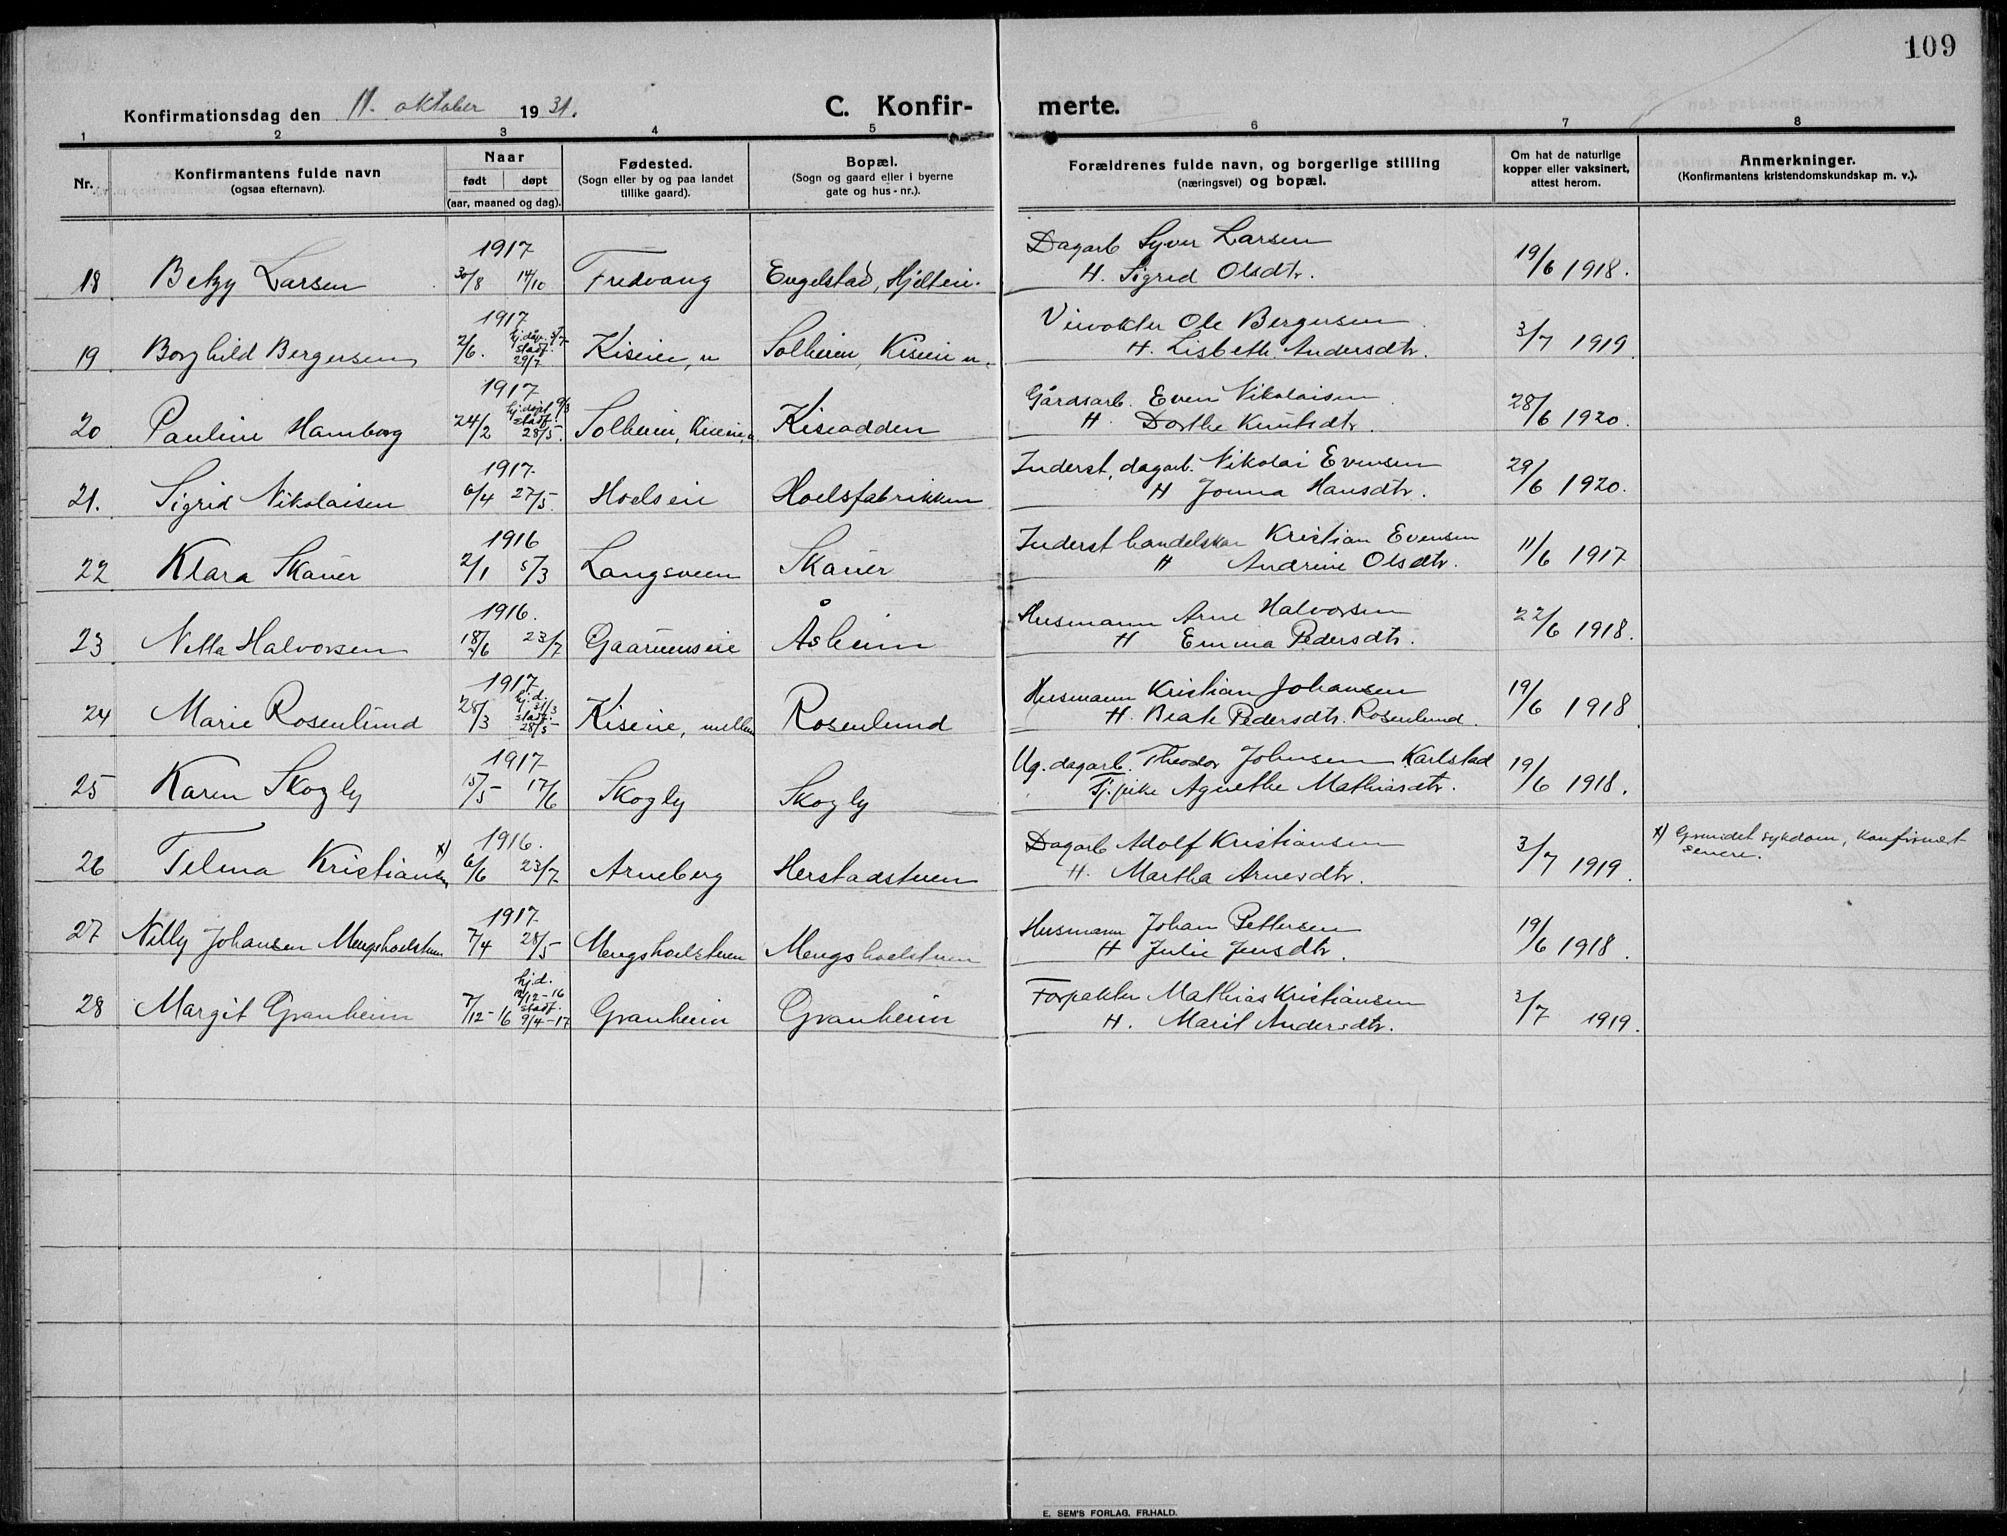 109
Konfirmationsdag den 11. oktober 1931.
C. Konfirmerte.
1 2 3 4 5 6 7 8
Nr.
Konfirmantens fulde navn
(ogsaa efternavn).
Naar
født døpt
(aar, maaned og dag).
Fødested.
(Sogn eller by og paa landet
tillike gaard).
Bopæl.
(Sogn og gaard eller i byerne
gate og hus-nr.).
Forældrenes fulde navn, og borgerlige stilling
(næringsvei) og bopæl.
Om hat de naturlige
kopper eller vaksinert,
attest herom.
Anmerkninger.
(Konfirmantens kristendomskundskap m. v.).
1917 Dagarb Syver Larsen
18 Betzy Larsen 30/8 14/10 Fredvang Engelstad, Hjelteie. H. Sigrid Olsdtr. 19/6 1918.
1917 hj.døv. 5/7 stadf. Veivokter Ole Bergersen
19 Borghild Bergersen 2/6. 29/7 Kiseie, n Solheim, Kiseie n. H. Lisbeth Andersdtr. 3/7 1919
1917 hj.døpt 9/3 stadf. Gårdsarb. Even Nikolaisen
20 Pauline Hamborg 24/2 28/5. Solheim, Kiseie, n. Kiseodden H. Dorthe Knutsdtr. 28/6 1920.
1917 Inderst, dagarb. Nikolai Evensen
21. Sigrid Nikolaisen 6/4 27/5 Hoelseie Hoelsfabrikken H Jonna Hansdtr. 29/6 1920.
1916 Inderst handelskar Kristian Evensen
22 Klara Skauer 2/1 5/3 Langsveen Skauer H Andrine Olsdtr. 11/6 1917
1916. Husmann Arne Halvorsen
23 Nella Halvorsen 18/6 23/7 Gaarumseie Åsheim H Emma Pedersdtr. 22/6 1918.
1917 hj.d. 31/3 stadf. Husmann Kristian Johansen
24 Marie Rosenlund 28/3 28/5 Kiseie, mellem Rosenlund H. Beate Pedersdtr. Rosenlund. 19/6 1918
1917 Ug. dagarb. Theodor Johnsen Karlstad
25 Karen Skogly 15/5 17/6 Skogly Skogly Tj.pike Agnethe Mathiasdtr. 19/6 1918.
1916. Dagarb Adolf Kristiansen x) Grundet sykdom, konfirmert
26 Telma Kristiansen x) 6/6 23/7 Arneberg Herstadstuen H. Martha Arnesdtr. 3/7 1919. senere.
1917 Husmann Johan Pettersen
27 Nelly Johansen Mengshoelstuen 7/4 28/5 Mengshoelstuen Mengshoelstuen H Julie Jensdtr. 19/6 1918.
hj.d. 12/12-16 stadf. Forpakter Mathias Kristiansen
28 Margit Granheim 7/12-16 9/4-17 Granheim Granheim H. Marit Andersdtr. 3/7 1919.
E. SEM'S FORLAG, FR.HALD.